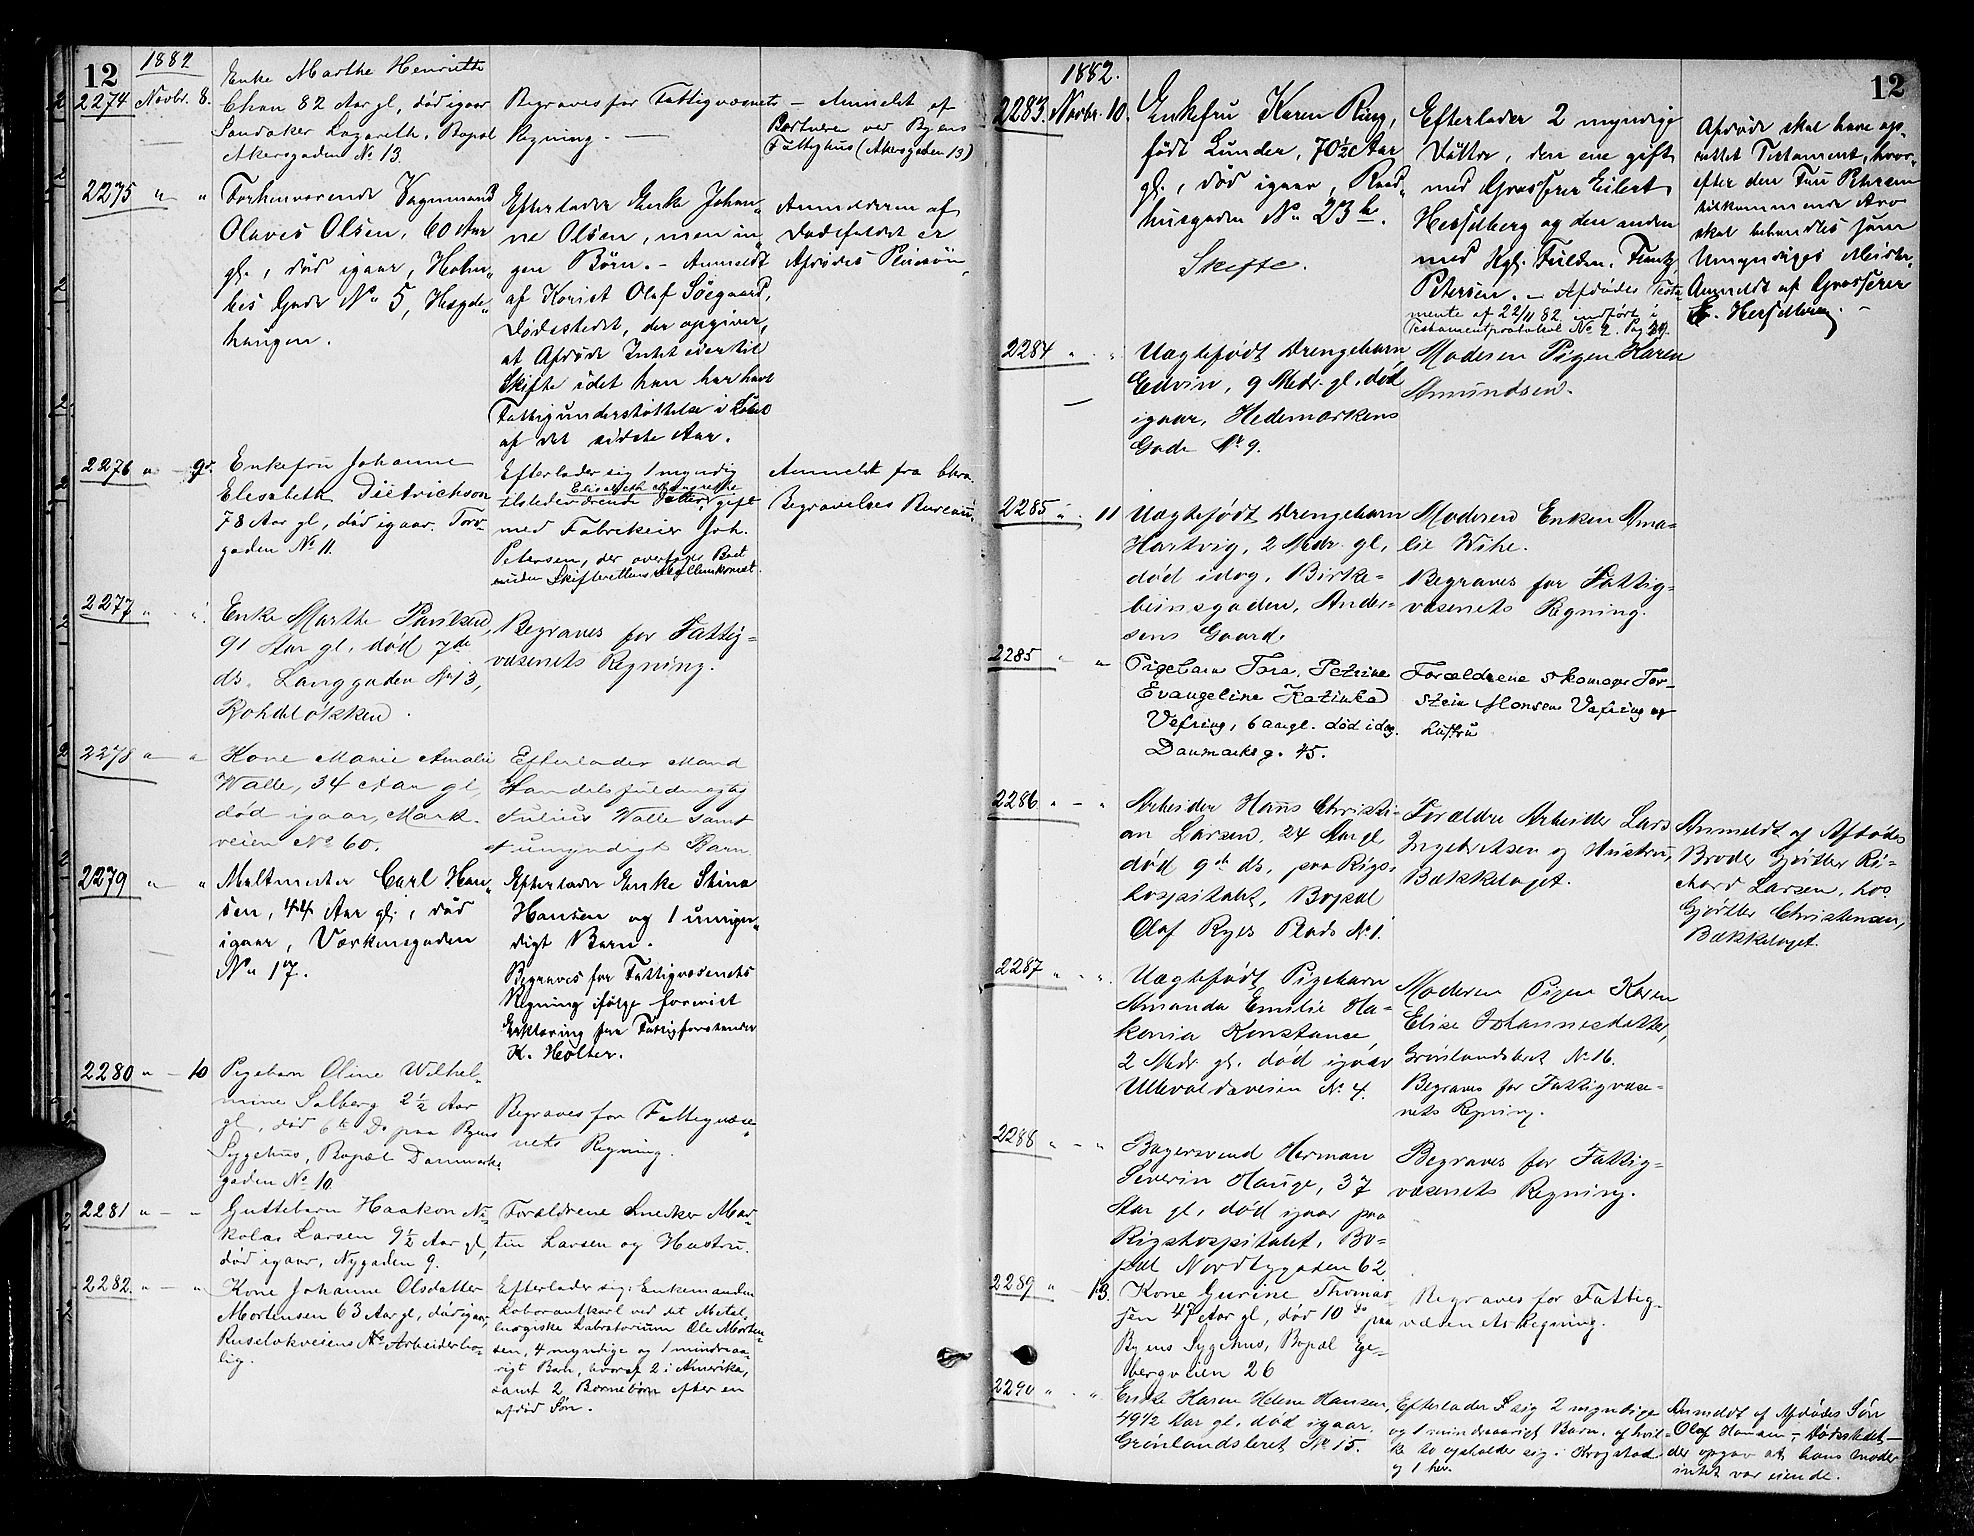 12
1882
2274 Novbr. 8.
Enke Marthe Henriette
82 Aar gl, død igaar
Sandaker Lazareth. Bopæl
Akersgaden No 13.
Begraves for Fattigvæsnets
Regning. —
— Anmeldt af
Portneren ved Byens
Fattighus (Akersgaden 13)
2275 " "
Forhenværende Vognmand
Olaves Olsen, 60 Aar
gl., død igaar, Holm-
boes Gade No 5, Hægde-
haugen.
Efterlader Enke Johan-
ne Olsen, men in-
gen Børn. — Anmeldt
af Korist Olaf Søegaard,
Dødsstedet, der opgiver,
at Afdøde Intet eier til
Skifte idet han har havt
Fattigunderstøttelse i Løbet
af det sidste Aar.
Anmelderen af
Dødsfaldet er
Afdødes Pleiesøn.
2276 " — 9de
Enkefru Johanne
Elisabeth Dietrichson
78 Aar gl, død igaar. Torv-
gaden No 11.
Efterlader sig 1 myndig
Elisabeth Margrethe
tilstedeværende Datter, gift
med Fabrikeier Joh.
Petersen, der overtager Boet
uden Skifterettens Mellemkomst.
Anmeldt fra Chra
Begravelses Bureau.
2277 " "
Enke Marthe Paulsen,
91 Aar gl, død 7de
ds. Langgaden No 13,
Rodeløkken.
Begraves for Fattig-
væsenets Regning.
2278 " "
Kone Marie Amalie
Walle, 34 Aar gl,
død igaar, Mark-
veien No 60.
Efterlader Mand
Handelsfuldmægtig
Julius Walle samt
1 umyndigt Barn
2279 " "
Maltmester Carl Han-
sen, 44 Aar gl., død
igaar, Værksgaden
No 17.
Efterlader Enke Stina
Hansen og 1 umyn-
digt Barn.
Begraves for Fattigvæsenets
Regning ifølge forevist
Erklæring fra Fattigforstander
K. Holter.
2280 " — 10
Pigebarn Oline Wilhel-
mine Solberg 2½ Aar
gl, død 6te Ds paa Byens
Sygehus, Bopæl Danmarks
gaden No 10
Begraves for Fattigvæse-
nets Regning.
2281 " — "
Guttebarn Haakon Ni-
kolai Larsen 9½ Aar gl,
død igaar, Nygaden 9.
Forældrene Snedker Mar-
tin Larsen og Hustru.
2282. " — "
Kone Johanne Olsdatter
Mortensen 63 Aar gl, død igaar,
Ruseløkveiens No Arbeiderbo-
lig.
Efterlader sig: Enkemanden
Laborantkarl ved det Metal-
lurgiske Labratorium Ole Morten-
sen, 4 myndige og 1 mindreaa-
rigt Barn, hvoraf 2 i Amerika,
samt 2 Børnebørn efter en
afdød Søn.
12
1882.
2283. Novbr. 10.
Enkefru Karen Ring,
født Lunder, 70½ Aar
gl., død igaar, Raad-
husgaden No 23 b.
Skifte.
Efterlader 2 myndige
Døttre, den ene gift
med Grosserer Eilert
Hesselberg og den anden
med Kgl. Fuldm. Funtz
Petersen. — Afdødes Testa-
mente af 22/11 82 indført i
Testamentprotokol No 2. Pag 39.
Afdøde skal have op-
rettet Testament, hvor-
efter den Fru Petersen
tilkommende Arv
skal behandles som
Umyndiges Midler.
Anmeldt af Grosserer
E. Hesselberg. —
2284 " "
Uægtefødt Drengebarn
Edvin, 9 Mdr. gl. død
igaar, Hedemarkens
Gade No 9.
Moderen Pigen Karen
Amundsen.
2285 " . 11
Uægtefødt Drengebarn
Hartvig, 2 Mdr. gl,
død idag, Birke-
beinsgaden, Ander-
sens Gaard.
Moderen Enken Ama-
lie Wihe.
Begraves for Fattig-
væsenets Regning.
2285 " "
Pigebarn Tora Petrine
Evangeline Katinka
Vefring, 6 aar gl. død idag.
Danmarks g. 45.
Forældrene Skomager Tor-
stein Monsen Vefring og
Hustru
2286 " — "
Arbeider Hans Christi-
an Larsen, 24 Aar gl
død 9de ds, paa Rigs-
hospitalet, Bopæl
Olaf Ryes Plads No 1.
Forældre Arbeider Lars
Ingebretsen og Hustru,
Bækkelaget.
Anmeldt af Afdødes
Broder Gjørtler Ri-
chard Larsen, hos
Gjørtler Christensen,
Bækkelaget.
2287 " "
Uægtefødt Pigebarn
Amanda Emilie Ha-
konia Konstance,
2 Mdr gl. død igaar
Ullevoldsveien No 4.
Moderen Pigen Karen
Elise Johannesdatter,
Grønlandsleret No 16.
Begraves for Fattigvæse-
nets Regning.
2288 " — "
Bagersvend Herman
Severin Hauge, 37
Aar gl, død igaar paa
Rigshospitalet, Bo-
pæl Nordbygaden 62
Begraves for Fattig-
væsenets Regning.
2289 " — 13.
Kone Gurine Thomas-
sen 47 Aar gl, død 10 ds paa
Byens Sygehus, Bopæl Ege-
bergveien 26
Begraves for Fattig-
væsenets Regning.
2290 " "
Enke Karen Helene Hansen,
49½ Aar gl, død igaar
Grønlandsleret No 15.
Efterlader sig 2 myndige
og 1 mindreaarigt Barn, af hvil-
ke to opholder sig i Krogstad
og 1 her.
Anmeldt af Afdødes Søn
Olaf Hansen, Dødsstedet —
der opgav at hans Moder
intet var eiende.